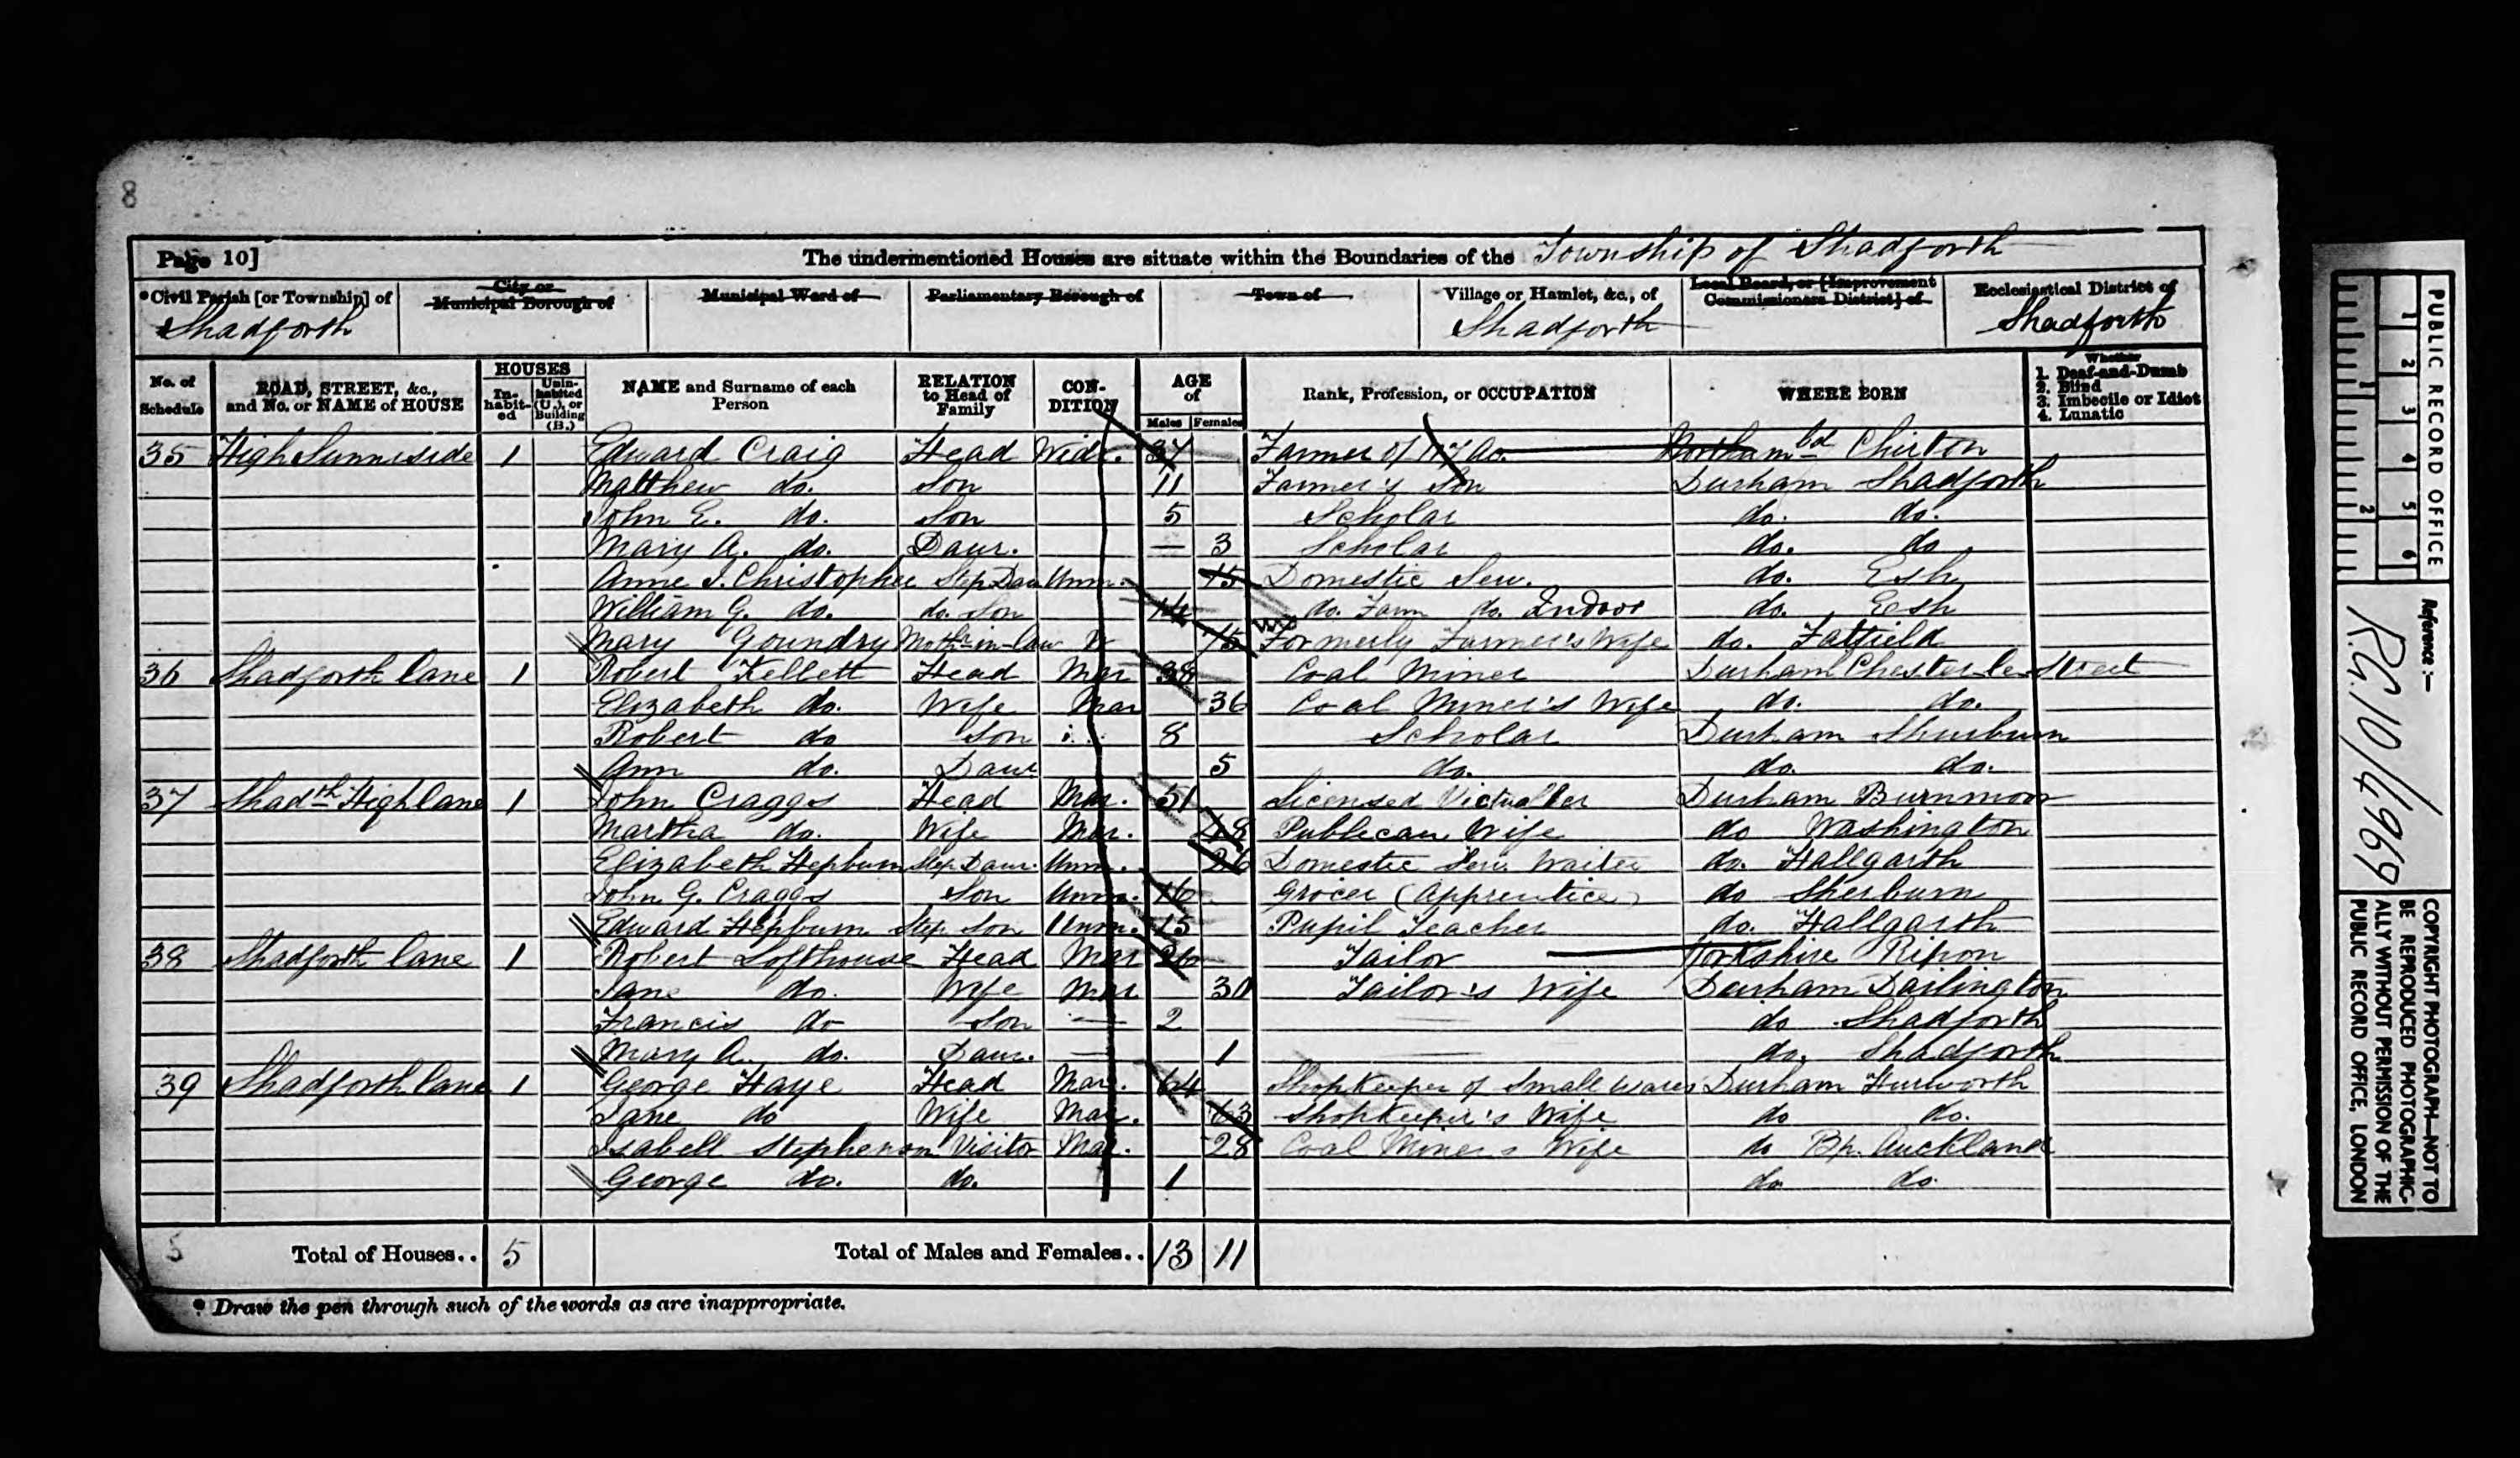 8
Page 10] The undermentioned Houses are situate within the Boundaries of the Township of Shadforth
*Civil Parish [or Township] of Shadforth
City or Municipal Borough of
Municipal Ward of
Parliamentary Borough of
Town of
Village or Hamlet, &c., of Shadforth
Local Board, or [Improvement Commissioners District] of
Ecclesiastical District of Shadforth
No. of Schedule
ROAD, STREET, &c., and No. or NAME of HOUSE
HOUSES
In-habit-ed
Unin-habited (U.), or Building (B.)
NAME and Surname of each Person
RELATION to Head of Family
CON-DITION
AGE of
Males Females
Rank, Profession, or OCCUPATION
WHERE BORN
Whether
1. Deaf-and-Dumb
2. Blind
3. Imbecile or Idiot
4. Lunatic
35 High Sunniside 1 Edward Craig Head Widr. 37 Farmer of Ac. Chirton
Matthew do. Son 11 Farmer's Son Durham Shadforth
John E. do. Son 5 Scholar do. do.
Mary A. do. Daur. — 3 Scholar do. do
Anne I. Christopher Step Daur Unm. 15 Domestic Serv. do. Esh
William G. do. do. Son 14 do. Farm do. Indoor do. Esh
Mary Goundry Mothr-in-law W 75 Formerly Farmer's Wife do. Fatfield
36 Shadforth lane 1 Robert Kellett Head Mar 38 Coal Miner Durham Chester le Street
Elizabeth do. Wife Mar 36 Coal Miner's Wife do. do.
Robert do Son 8 Scholar Durham Shurburn
Ann do. Daur 5 do. do. do.
37 Shadth High lane 1 John Craggs Head Mar. 51 Licensed Victualler Durham Burnmoor
Martha do. Wife Mar. 48 Publican Wife do Washington
Elizabeth Hepburn Step Daur. Unm. 26 Domestic Serv. Waiter do. Hallgarth
John G. Craggs Son Unm. 16 Grocer (Apprentice) do Sherburn
Edward Hepburn Step Son Unm. 15 Pupil Teacher do. Hallgarth
38 Shadforth lane 1 Robert Lofthouse Head Mar 26 Tailor Yorkshire Ripon
Jane do. Wife Mar 30 Tailor's Wife Durham Darlington
Francis do Son — 2 do Shadforth
Mary A. do. Daur. — 1 do. Shadforth
39 Shadforth lane 1 George Haye Head Mar. 64 Shopkeeper of Small wares Durham Hurworth
Jane do Wife Mar. 63 Shopkeeper's Wife do do.
Isabell Stephenson Visitor Mar. 28 Coal Miner's Wife do Bp. Auckland
George do. do. 1 do do.
5 Total of Houses.. 5 Total of Males and Females.. 13 11
* Draw the pen through such of the words as are inappropriate.
PUBLIC RECORD OFFICE
1 2 3 4 5 6
1 2
Reference :-
R.G. 10/4969
COPYRIGHT PHOTOGRAPH—NOT TO BE REPRODUCED PHOTOGRAPHIC-ALLY WITHOUT PERMISSION OF THE PUBLIC RECORD OFFICE, LONDON